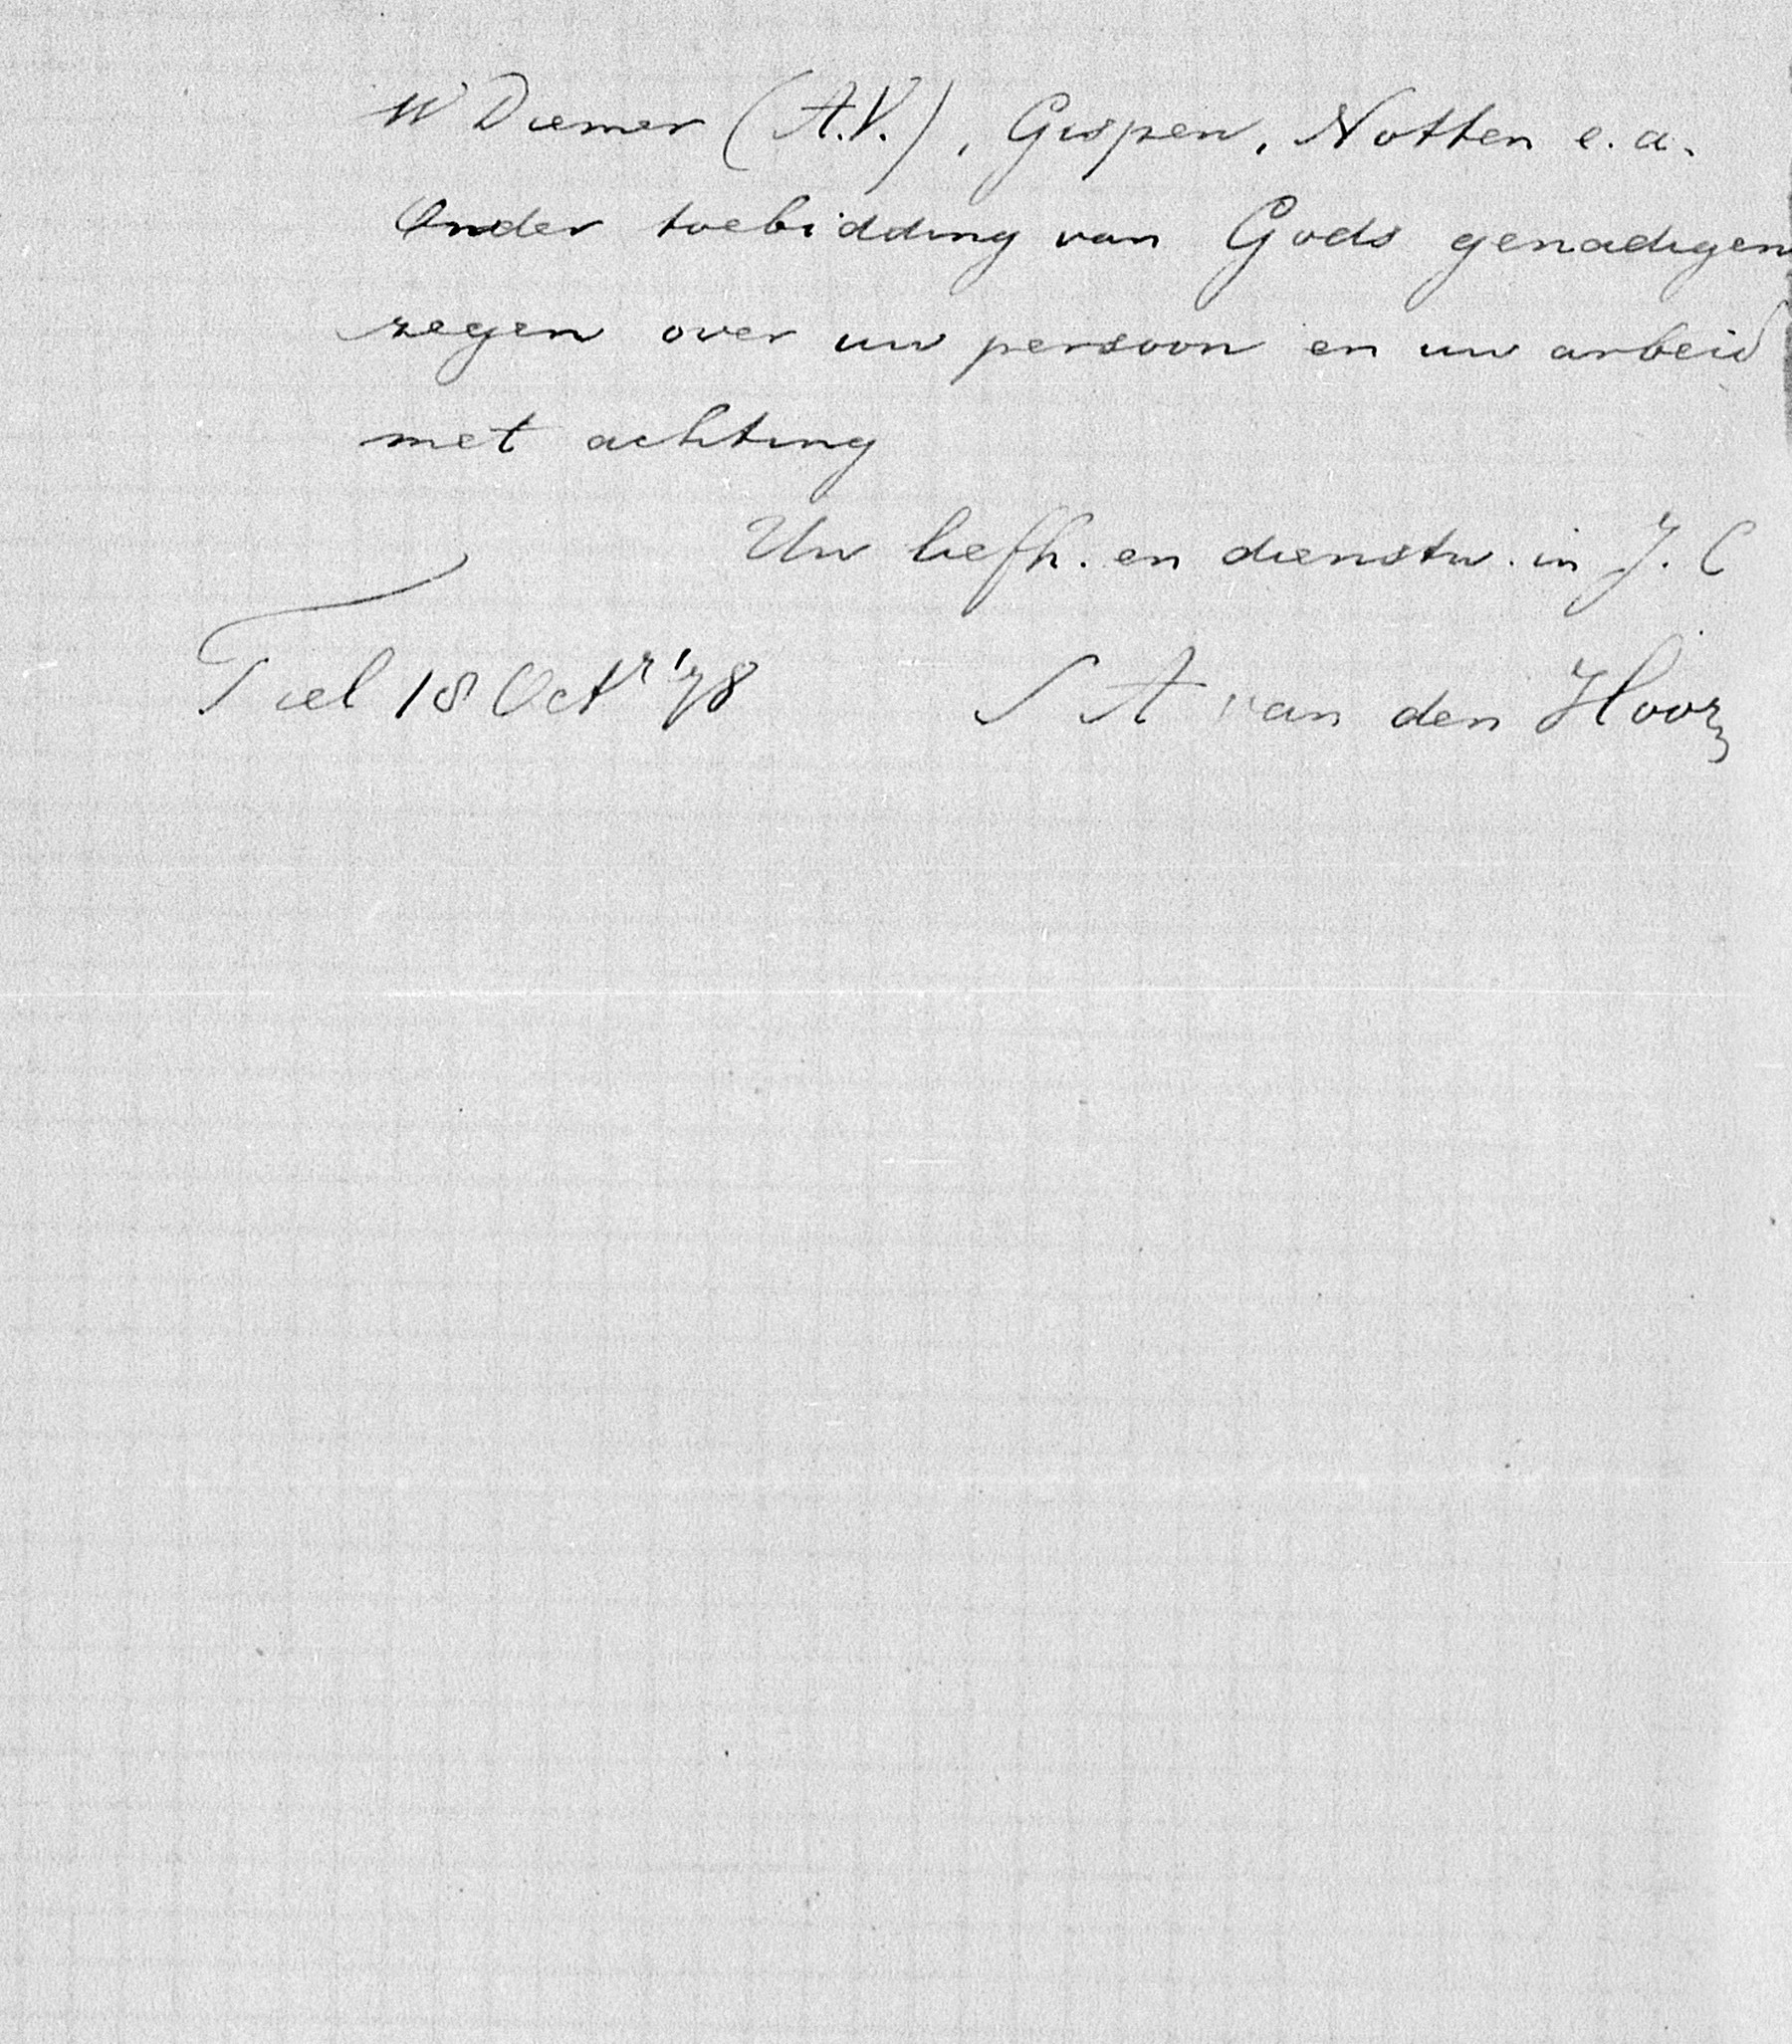 W Diemer (A.V.), Gispen, Notten e.a.
Onder toebidding van Gods genadigen
zegen over uw persoon en uw arbeid
met achting
Uw liefh. en dienstw. in J. C
Tiel 18 Octr '78 S A van den Hoorn